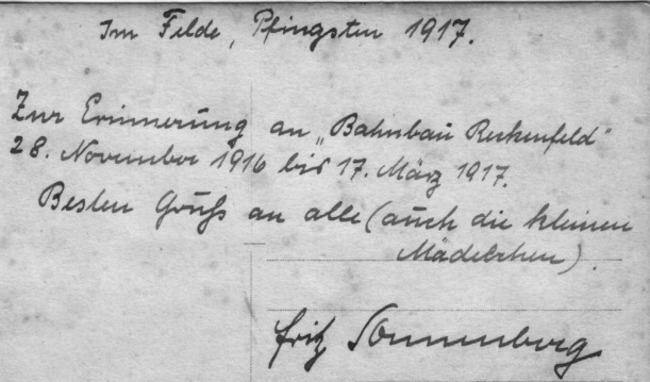 Im Felde, Pfingsten 1917.
Zur Erinnerung an „Bahnbau Reckenfeld"
28. November 1916 bis 17. März 1917.
Besten Gruß an alle (auch die kleinen
Mädelchen).
Fritz Sonnenberg